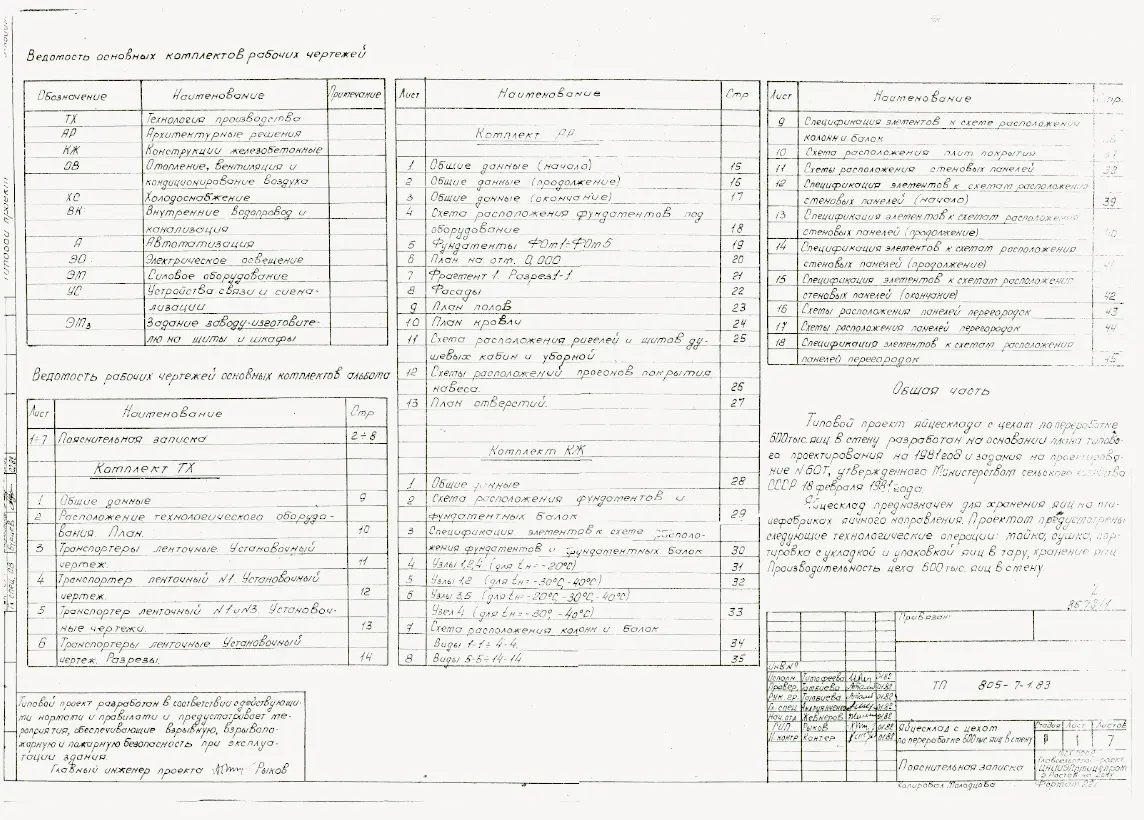 Ведомость основных комплектов рабочих чертежей
Обозначение Наименование Примечание
ТХ Технология производства
АР Архитектурные решения
КЖ Конструкции железобетонные
ОВ Отопление, вентиляция и
кондиционирование воздуха
ХС Холодоснабжение
ВК Внутренние водопровод и
канализация
А Автоматизация
ЭО Электрическое освещение
ЭМ Силовое оборудование
УС Устройства связи и сигна-
лизации
ЭМз Задание заводу-изготовите-
лю на щиты и шкафы
Ведомость рабочих чертежей основных комплектов альбома
Лист Наименование Стр
1÷7 Пояснительная записка 2÷8
Комплект ТХ
1 Общие данные 9
2 Расположение технологического оборудо-
вания. План. 10
3 Транспортеры ленточные. Установочный
чертеж. 11
4 Транспортер ленточный №1. Установочный
чертеж 12
5 Транспортер ленточный №1 и №3. Установоч-
ные чертежи. 13
6 Транспортеры ленточные Установочный
чертеж. Разрезы. 14
Типовой проект разработан в соответствии с действующи-
ми нормами и правилами и предусматривает ме-
роприятия, обеспечивающие взрывную, взрывопо-
жарную и пожарную безопасность при эксплуа-
тации здания.
Главный инженер проекта Рыков
Лист Наименование Стр
Комплект АР
1 Общие данные (начало) 15
2 Общие данные (продолжение) 16
3 Общие данные (окончание) 17
4 Схема расположения фундаментов под
оборудование 18
5 Фундаменты ФОм1÷ФОм5 19
6 План на отм. 0.000 20
7 Фрагмент 1. Разрез 1-1 21
8 Фасады 22
9 План полов 23
10 План кровли 24
11 Схема расположения ригелей и щитов ду-
шевых кабин и уборной 25
12 Схемы расположений прогонов покрытия
навеса. 26
13 План отверстий. 27
Комплект КЖ
1 Общие данные 28
2 Схема расположения фундаментов и
фундаментных балок 29
3 Спецификация элементов к схеме располо-
жения фундаментов и фундаментных балок 30
4 Узлы 1,2,4 (для tн= -20°С) 31
5 Узлы 1,2 (для tн= -30°С, -40°С) 32
6 Узлы 3,5 (для tн= -20°С, -30°С, -40°С)
Узел 4 (для tн= -30°, -40°С) 33
7 Схема расположения колонн и балок
Виды 1-1÷4-4 34
8 Виды 5-5÷14-14 35
Лист Наименование
9 Спецификация элементов к схеме расположения
колонн и балок
10 Схема расположения плит покрытия
11 Схемы расположения стеновых панелей
12 Спецификация элементов к схемам расположения
стеновых панелей (начало) 39
13 Спецификация элементов к схемам расположения
стеновых панелей (продолжение)
14 Спецификация элементов к схемам расположения
стеновых панелей (продолжение)
15 Спецификация элементов к схемам расположения
стеновых панелей (окончание) 42
16 Схемы расположения панелей перегородок 43
17 Схемы расположения панелей перегородок 44
18 Спецификация элементов к схемам расположения
панелей перегородок 45
Общая часть
Типовой проект яйцесклада с цехом по переработке
600тыс. яиц в смену разработан на основании плана типово-
го проектирования на 1981год и задания на проектирова-
ние №60Т, утвержденного Министерством сельского хозяйства
СССР 18 февраля 1981 года.
Яйцесклад предназначен для хранения яиц на пти-
цефабриках яичного направления. Проектом предусмотрены
следующие технологические операции: мойка, сушка, сор-
тировка с укладкой и упаковкой яиц в тару, хранение яиц
Производительность цеха 600 тыс. яиц в смену
Привязан
Инв №
ТП 805-7-1.83
Исполн. Тимофеева 01.82
Провер. Галбиева 01.82
Рук. гр. Галбиева 01.82
Гл. спец. 01.82
Нач. отд. Жевнеров 01.82
ГИП Рыков 01.82
Н. контр. Кантер 01.82
Яйцесклад с цехом
по переработке 600 тыс. яиц в смену
Стадия Лист Листов
Р 1 7
Пояснительная записка
Копировал Молодцова Формат 22г